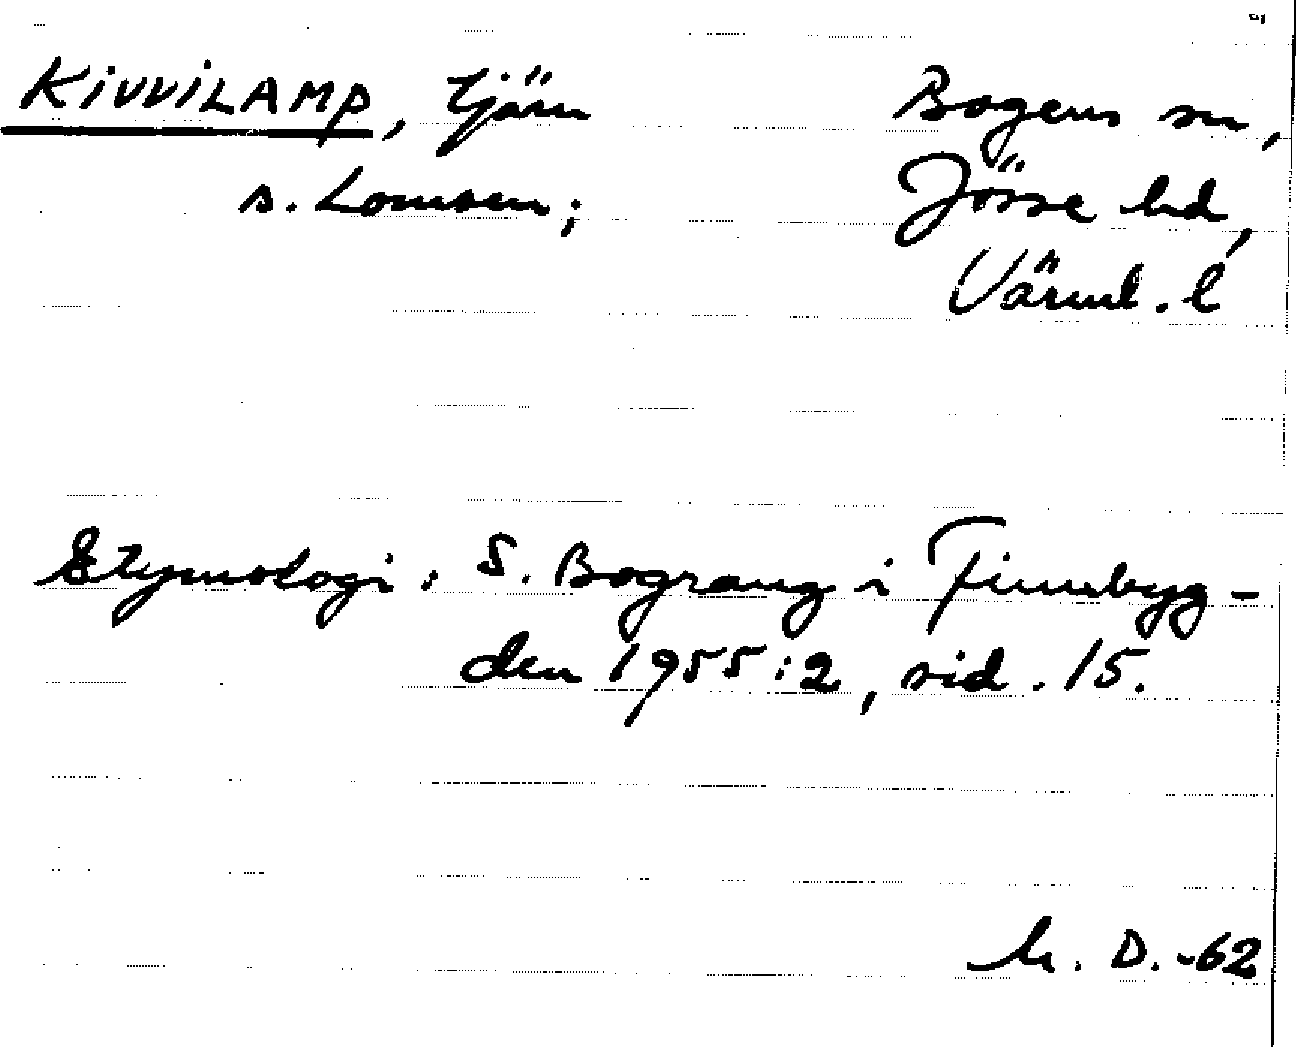 KIVVILAMP, tjärn Bogens sn,
s. Lomsen; Jösse hd,
Värml. l
Etymologi: S. Bograng i Finnbyg-
den 1955:2, sid. 15.
D. -62